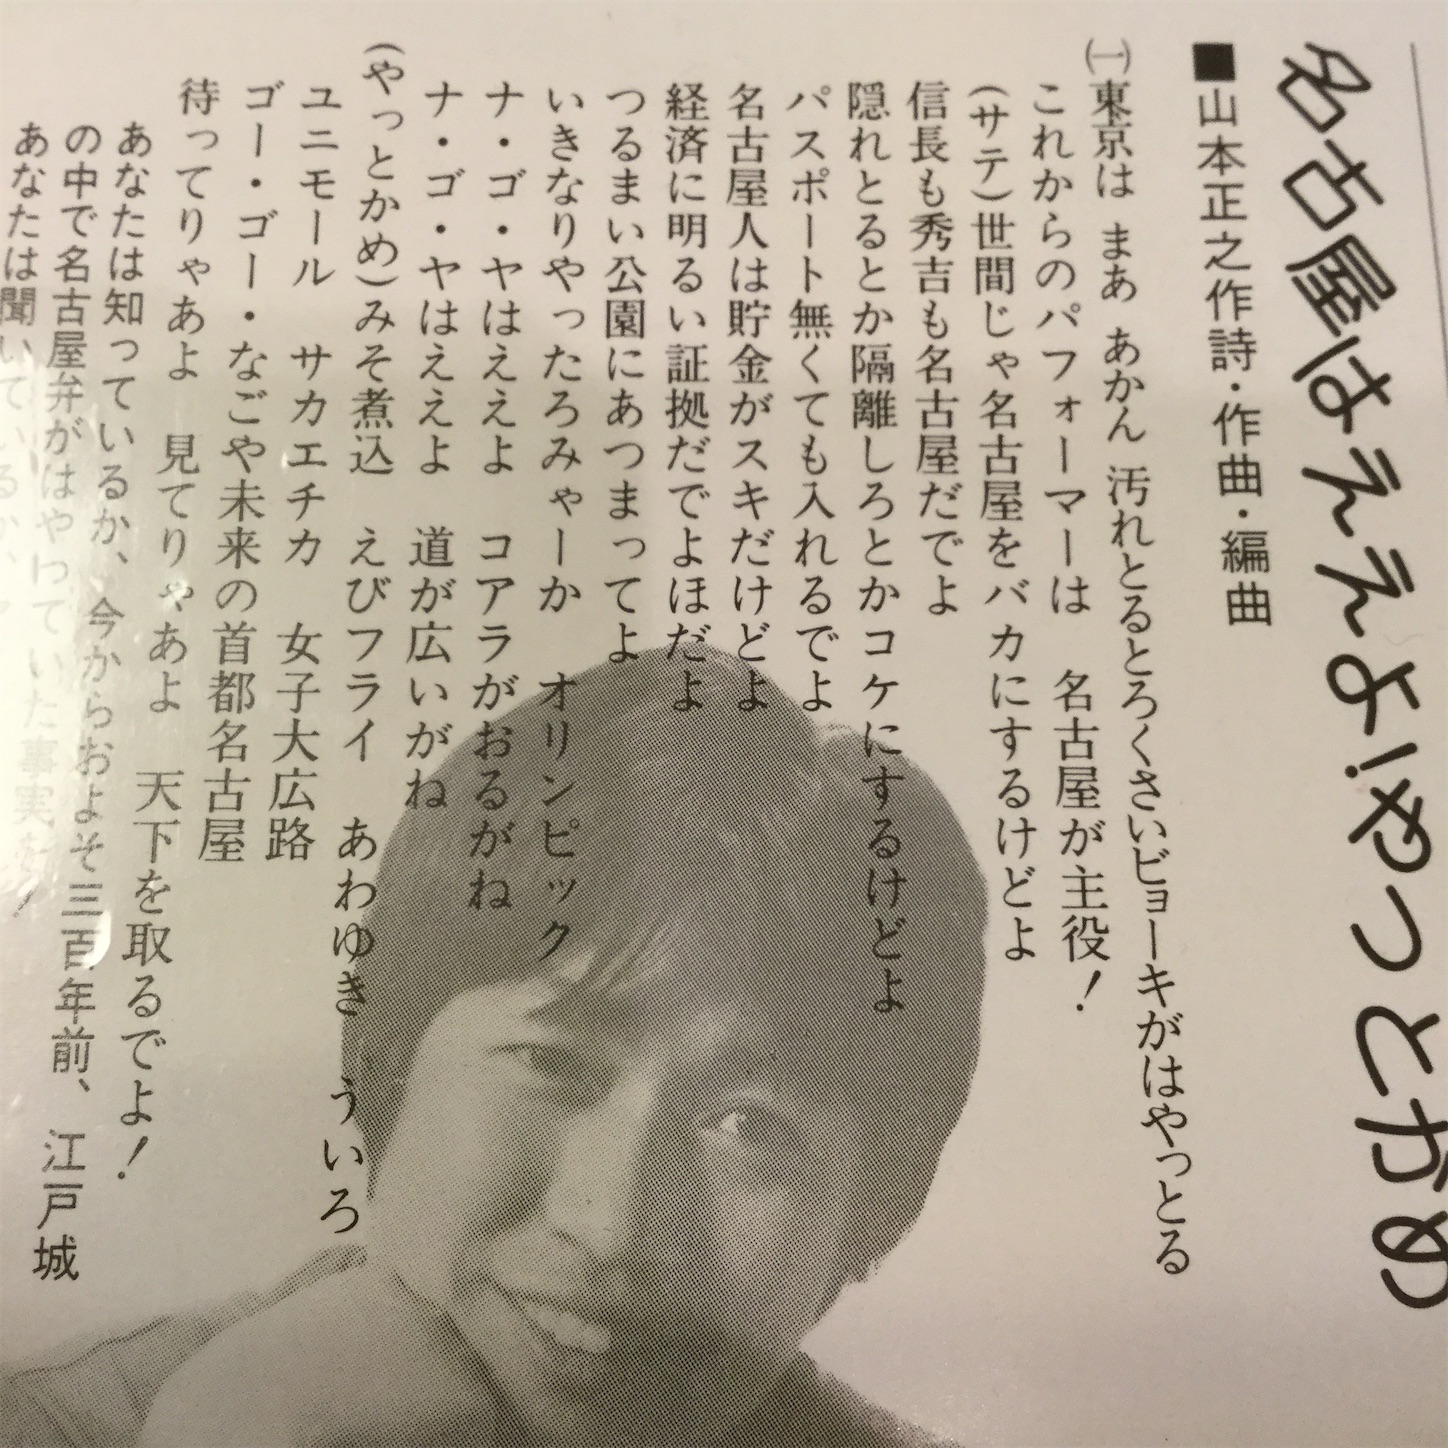 名古屋はええよ!やっとかめ
■山本正之作詩・作曲・編曲
㈠東京は まあ あかん 汚れとるとろくさいビョーキがはやっとる
これからのパフォーマーは 名古屋が主役!
(サテ)世間じゃ名古屋をバカにするけどよ
信長も秀吉も名古屋だでよ
隠れとるとか隔離しろとかコケにするけどよ
パスポート無くても入れるでよ
名古屋人は貯金がスキだけどよ
経済に明るい証拠だでよほだよ
つるまい公園にあつまってよ
いきなりやったろみゃーか オリンピック
ナ・ゴ・ヤはええよ コアラがおるがね
ナ・ゴ・ヤはええよ 道が広いがね
(やっとかめ)みそ煮込 えびフライ あわゆき ういろ
ユニモール サカエチカ 女子大広路
ゴー・ゴー・なごや未来の首都名古屋
待ってりゃあよ 見てりゃあよ 天下を取るでよ!
あなたは知っているか、今からおよそ三百年前、江戸城
の中で名古屋弁がはやっていた事実を!
あなたは聞いているか、